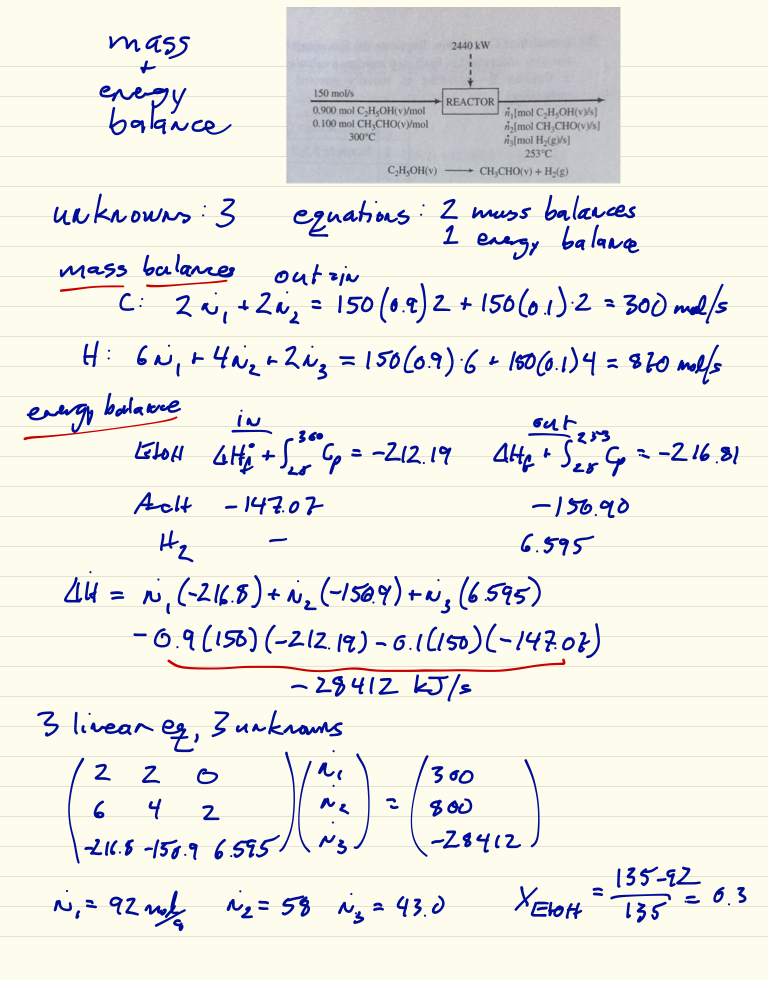 mass
+
energy
balance
2440 kW
150 mol/s
REACTOR
0.900 mol C₂H₅OH(v)/mol
0.100 mol CH₃CHO(v)/mol
300°C
ṅ₁[mol C₂H₅OH(v)/s]
ṅ₂[mol CH₃CHO(v)/s]
ṅ₃[mol H₂(g)/s]
253°C
C₂H₅OH(v) ⟶ CH₃CHO(v) + H₂(g)
unknowns: 3 equations: 2 mass balances
1 energy balance
mass balances out=in
C: 2ṅ₁ + 2ṅ₂ = 150(0.9)2 + 150(0.1)·2 = 300 mol/s
H: 6ṅ₁ + 4ṅ₂ + 2ṅ₃ = 150(0.9)·6 + 150(0.1)4 = 870 mol/s
energy balance in out
EtOH ΔH°f + ∫₂₅³⁰⁰ Cp = -212.19 ΔHf + ∫₂₅²⁵³ Cp = -216.81
AcH -147.07 -150.90
H₂ — 6.595
ΔḢ = ṅ₁(-216.8) + ṅ₂(-150.9) + ṅ₃(6.595)
-0.9(150)(-212.19) - 0.1(150)(-147.07)
-28412 kJ/s
3 linear eq, 3 unknowns
(2 2 0) (ṅ₁) (300)
(6 4 2) (ṅ₂) = (800)
(-216.8 -150.9 6.595) (ṅ₃) (-28412)
ṅ₁ = 92 mol/s ṅ₂ = 58 ṅ₃ = 43.0 X_EtOH = (135-92)/135 = 0.3